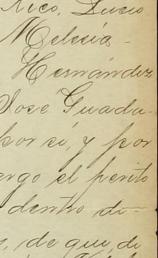 Rico, Lucio
Melesia
Hernández
José Guada-
por sí, y por
ergo el perito
dentro de
, de que di